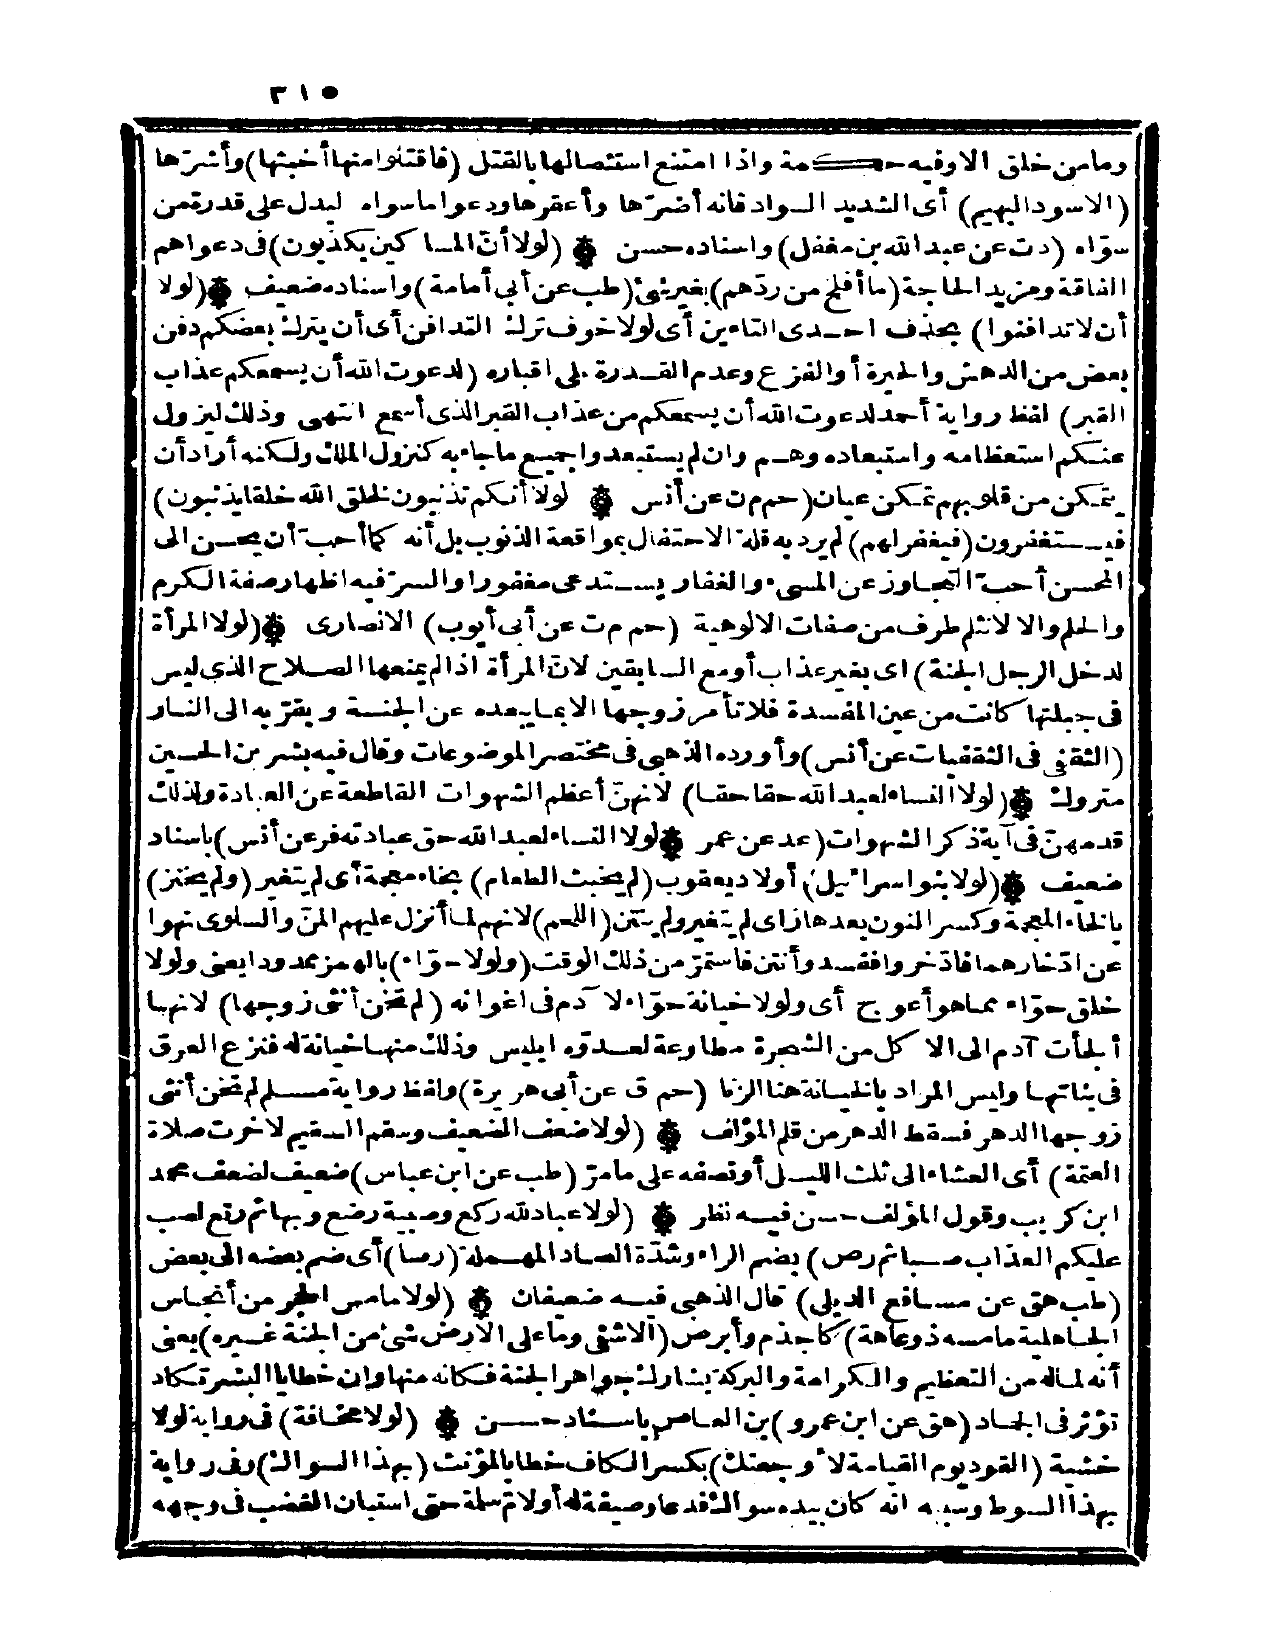 ٣١٥
وما من خلق الا وفيه حكمة واذا امتنع استئصالها بالقتل (فاقتلوا منها أخبثها) وأشرّها
(الاسود البهيم) أى الشديد السواد فانه أضرّها وأعقرها ودعوا ما سواه ليدل على قدرة من
سوّاه (دت عن عبد الله بن مغفل) واسناده حسن ۞ (لولا أنّ المساكين يكذبون) فى دعواهم
الفاقة ومزيد الحاجة (ما أفلح من ردّهم) بغير شئ (طب عن أبى أمامة) واسناده ضعيف ۞ (لولا
أن لا تدافنوا) بحذف احدى التاءين أى لولا خوف ترك التدافن أى أن يترك بعضكم دفن
بعض من الدهش والحيرة أو الفزع وعدم القدرة على اقباره (لدعوت الله أن يسمعكم عذاب
القبر) لفظ رواية أحمد لدعوت الله أن يسمعكم من عذاب القبر الذى أسمع انتهى وذلك ليزول
عنكم استعظامه واستبعاده وهم وان لم يستبعدوا جميع ما جاء به كنزول الملك ولكنه أراد أن
يتمكن من قلوبهم تمكن عيان (حم م ن عن أنس ۞ لولا أنكم تذنبون لخلق الله خلقا يذنبون)
فيستغفرون (فيغفر لهم) لم يرد به قلة الاحتفال بمواقعة الذنوب بل أنه كما أحب أن يحسن الى
المحسن أحبّ التجاوز عن المسىء والغفار يستدعى مغفورا والسرّ فيه اظهار صفة الكرم
والحلم والا لانثلم طرف من صفات الالوهية (حم م ت عن أبى أيوب) الانصارى ۞ (لولا المرأة
لدخل الرجل الجنة) اى بغير عذاب أو مع السابقين لانّ المرأة اذا لم يمنعها الصلاح الذى ليس
فى جبلتها كانت من عين المفسدة فلا تأمر زوجها الا بما يبعده عن الجنة ويقرّبه الى النار
(الثقفى فى الثقفيات عن أنس) وأورده الذهبى فى مختصر الموضوعات وقال فيه بشر بن الحسين
متروك ۞ (لولا النساء لعبد الله حقا حقا) لانهنّ أعظم الشهوات القاطعة عن العبادة ولذلك
قدمهنّ فى آية ذكر الشهوات (عد عن عمر ۞ لولا النساء لعبد الله حق عبادته فر عن أنس) باسناد
ضعيف ۞ (لولا بنو اسرائيل) أولاد يعقوب (لم يخبث الطعام) بخاء معجمة أى لم يتغير (ولم يخنز)
بالخاء المعجمة وكسر النون بعدها زاى لم يتغير ولم ينتن (اللحم) لانهم لما أنزل عليهم المنّ والسلوى نهوا
عن ادّخارهما فادّخروا ففسد وأنتن فاستمرّ من ذلك الوقت (ولولا حوّاء) بالهمز ممدودا يعنى ولولا
خلق حوّاء مما هو أعوج أى ولولا خيانة حوّاء لآدم فى اغوائه (لم تخن أنثى زوجها) لانها
ألجأت آدم الى الاكل من الشجرة مطاوعة لعدوّه ابليس وذلك منها خيانة له فنزع العرق
فى بناتها وليس المراد بالخيانة هنا الزنا (حم ق عن أبى هريرة) ولفظ رواية مسلم لم تخن أنثى
زوجها الدهر فسقط الدهر من قلم المؤلف ۞ (لولا ضعف الضعيف وسقم السقيم لاخرت صلاة
العتمة) أى العشاء الى ثلث الليل أو نصفه على ما مرّ (طب عن ابن عباس) ضعيف لضعف محمد
ابن كريب وقول المؤلف حسن فيه نظر ۞ (لولا عباد لله ركع وصبية رضع وبهائم رتع لصب
عليكم العذاب صبا ثم رص) بضم الراء وشدّة الصاد المهملة (رصا) أى ضم بعضه الى بعض
(طب هق عن مسافع الديلى) قال الذهبى فيه ضعيفان ۞ (لولا ما مس الحجر من أنجاس
الجاهلية ما مسه ذو عاهة) كأجذم وأبرص (الا شفى وما على الارض شئ من الجنة غيره) يعنى
أنه لما له من التعظيم والكرامة والبركة يشارك جواهر الجنة فكانه منها وان خطايا البشر تكاد
تؤثر فى الجماد (هق عن ابن عمرو) بن العاص باسناد حسن ۞ (لولا مخافة) فى رواية لولا
خشية (القود يوم القيامة لأوجعتك) بكسر الكاف خطابا لمؤنث (بهذا السواك) وفى رواية
بهذا السوط وسببه انه كان بيده سواك فدعا وصيفة له أو لامّ سلمة حتى استبان الغضب فى وجهه